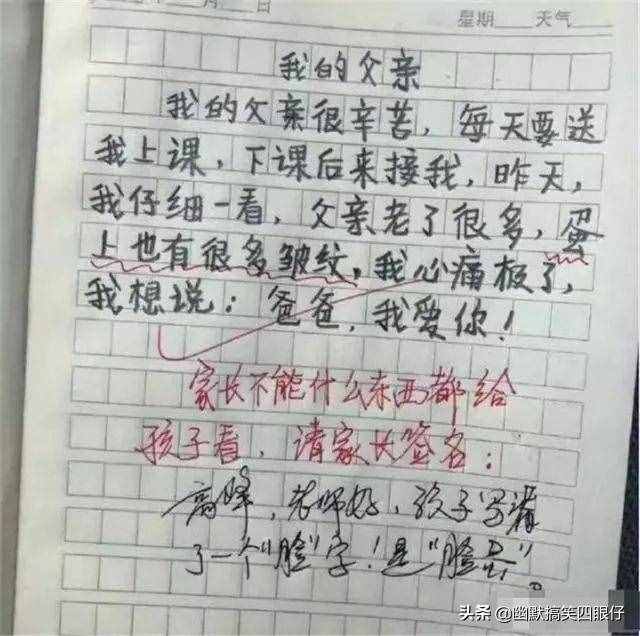 月 日
星期 天气
我的父亲
我的父亲很辛苦，每天要送
我上课，下课后来接我，昨天，
我仔细一看，父亲老了很多，蛋
上也有很多皱纹，我心痛极了，
我想说：爸爸，我爱你！
家长不能什么东西都给
孩子看，请家长签名：
高峰，老师好，孩子写漏
了一个“脸”字！是“脸蛋”。
头条 @幽默搞笑四眼仔